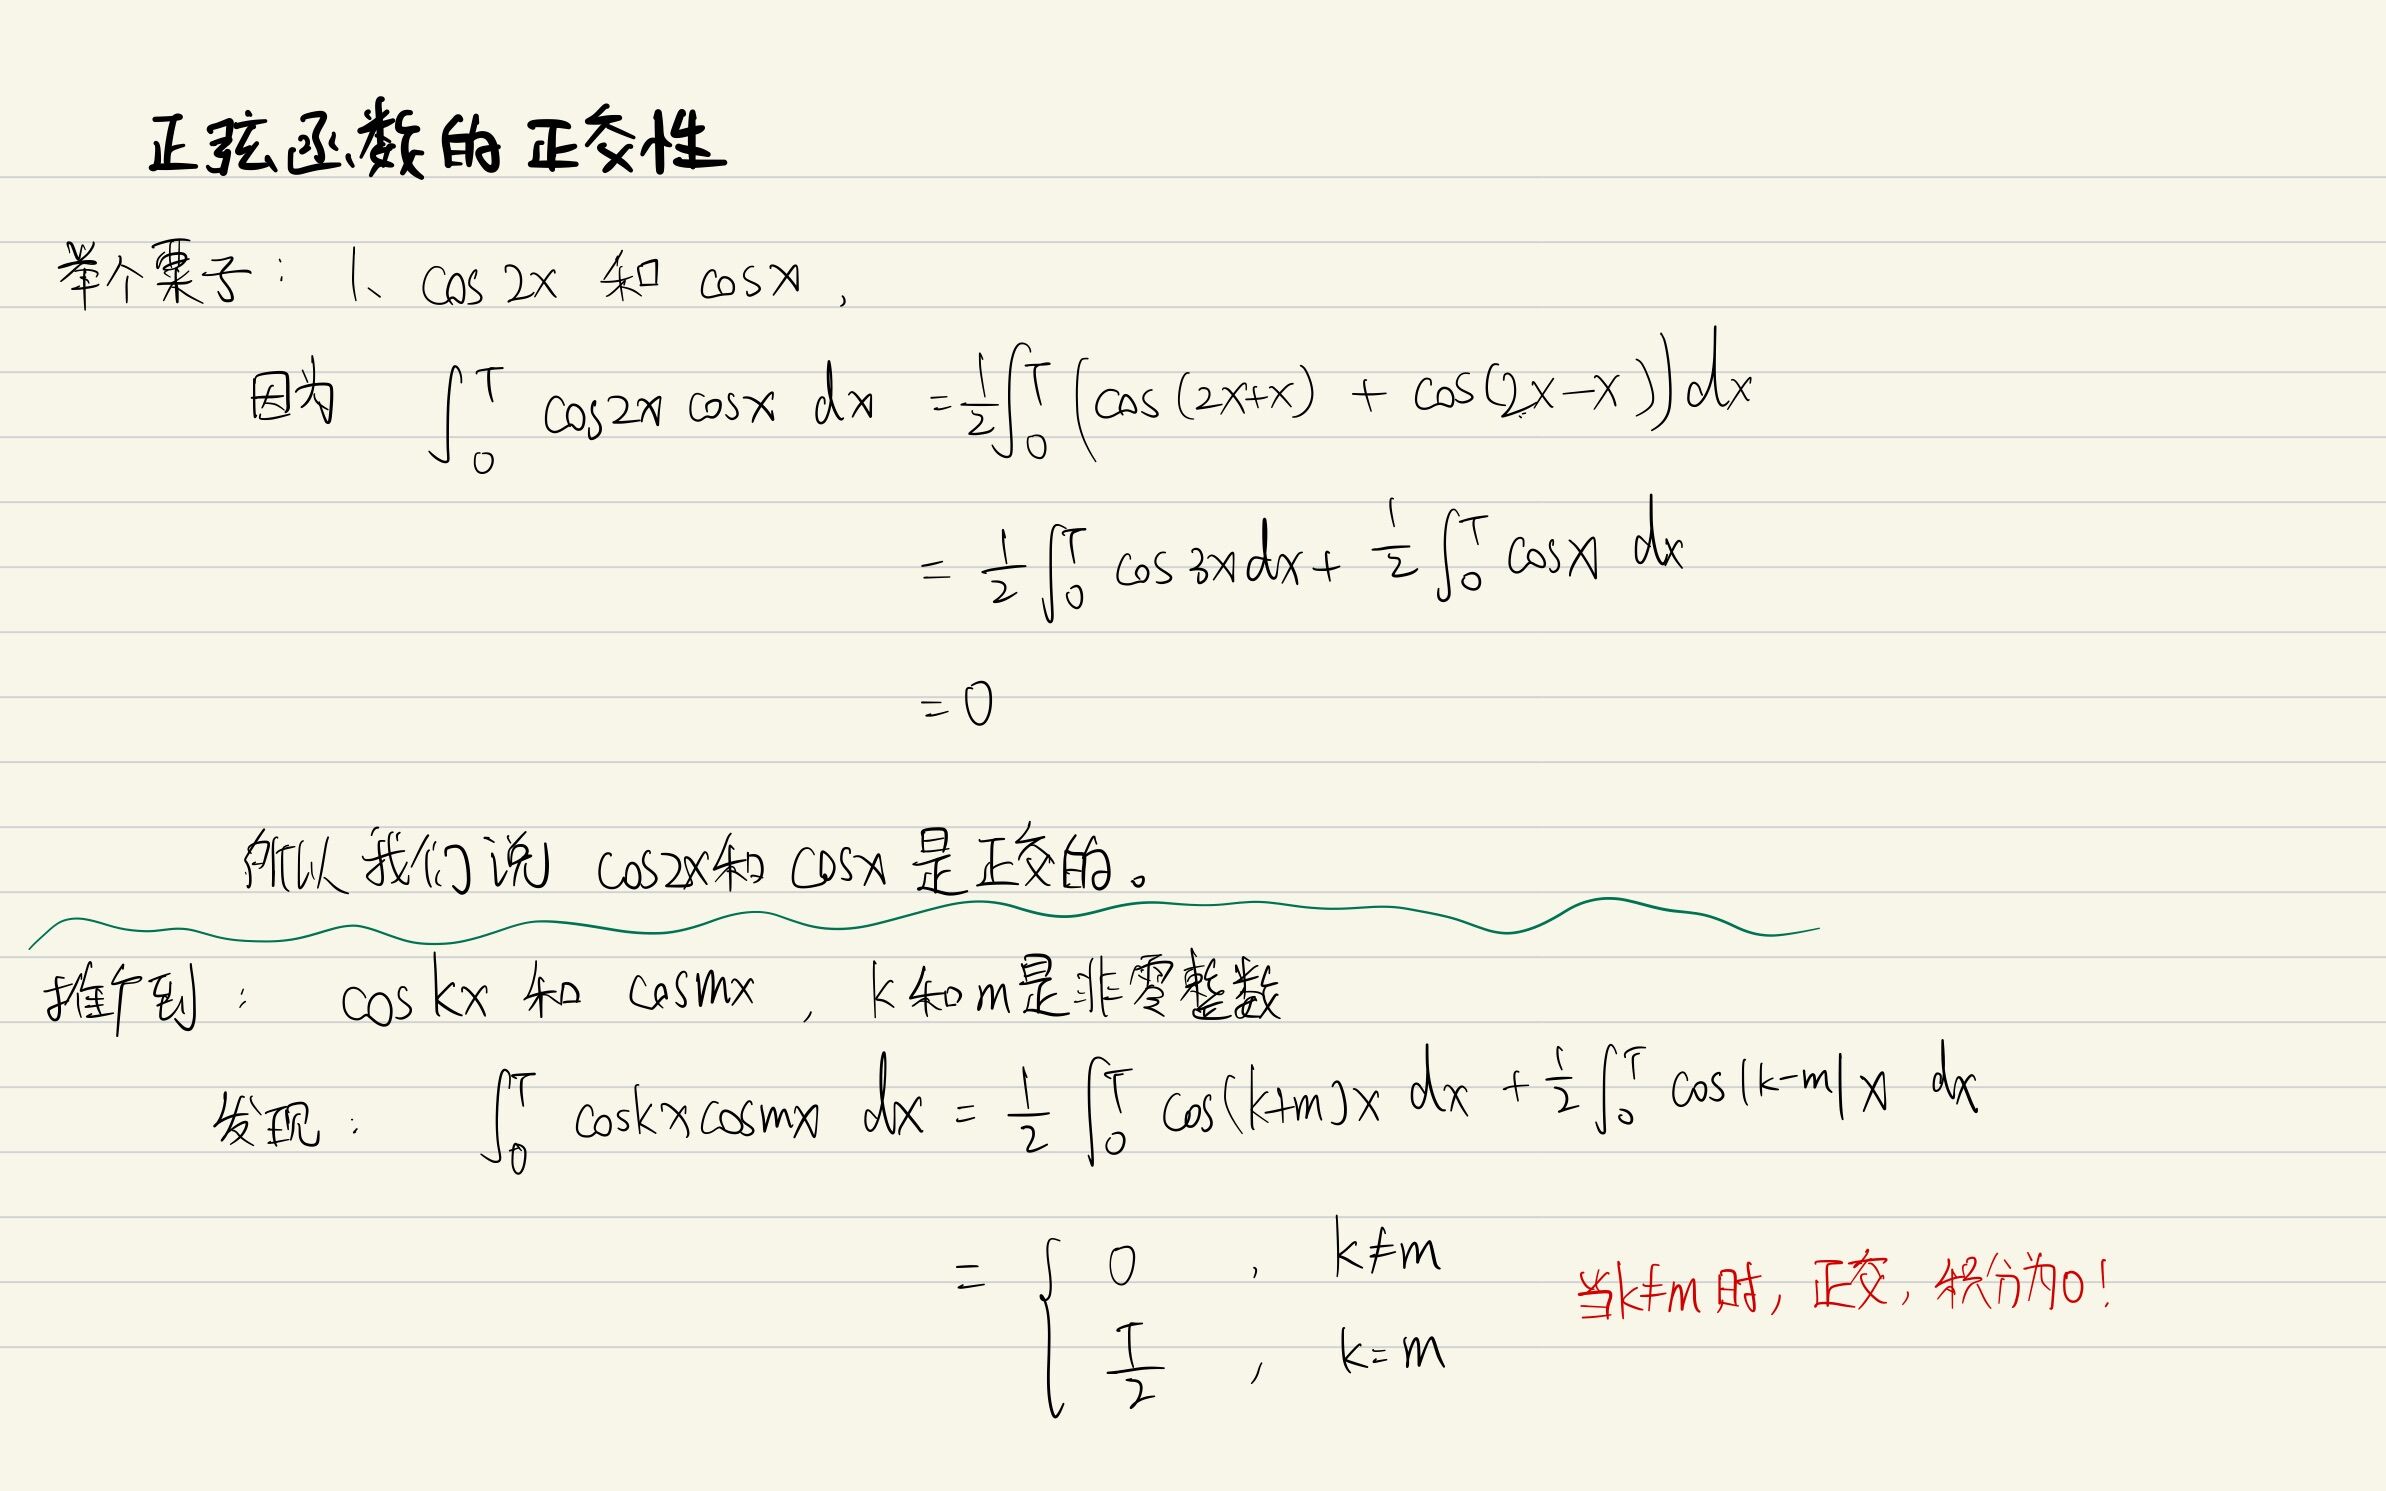 正弦函数的正交性
举个栗子： 1、 cos 2x 和 cosx，
因为 ∫₀ᵀ cos2x cosx dx = 1/2 ∫₀ᵀ (cos(2x+x) + cos(2x-x)) dx
= 1/2 ∫₀ᵀ cos3x dx + 1/2 ∫₀ᵀ cosx dx
= 0
所以我们说 cos2x和 cosx 是正交的。
推广到： cos kx 和 cosmx ， k和m是非零整数
发现： ∫₀ᵀ coskx cosmx dx = 1/2 ∫₀ᵀ cos(k+m)x dx + 1/2 ∫₀ᵀ cos|k-m|x dx
= { 0 , k≠m
T/2 , k=m
当k≠m时，正交，积分为0！